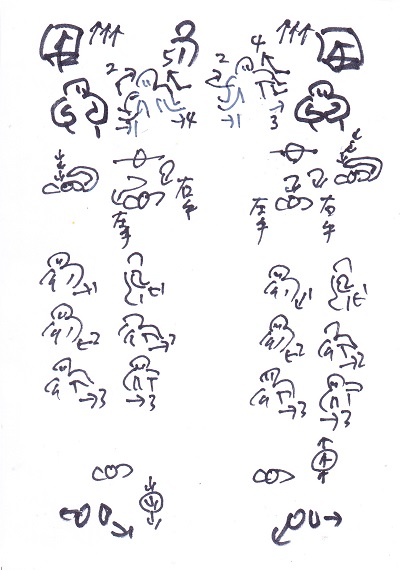 5
2 2 4
1 4 1 3
右手
左手 左手 右手
1 1 1 1
2 2 2 2
3 3 3 3